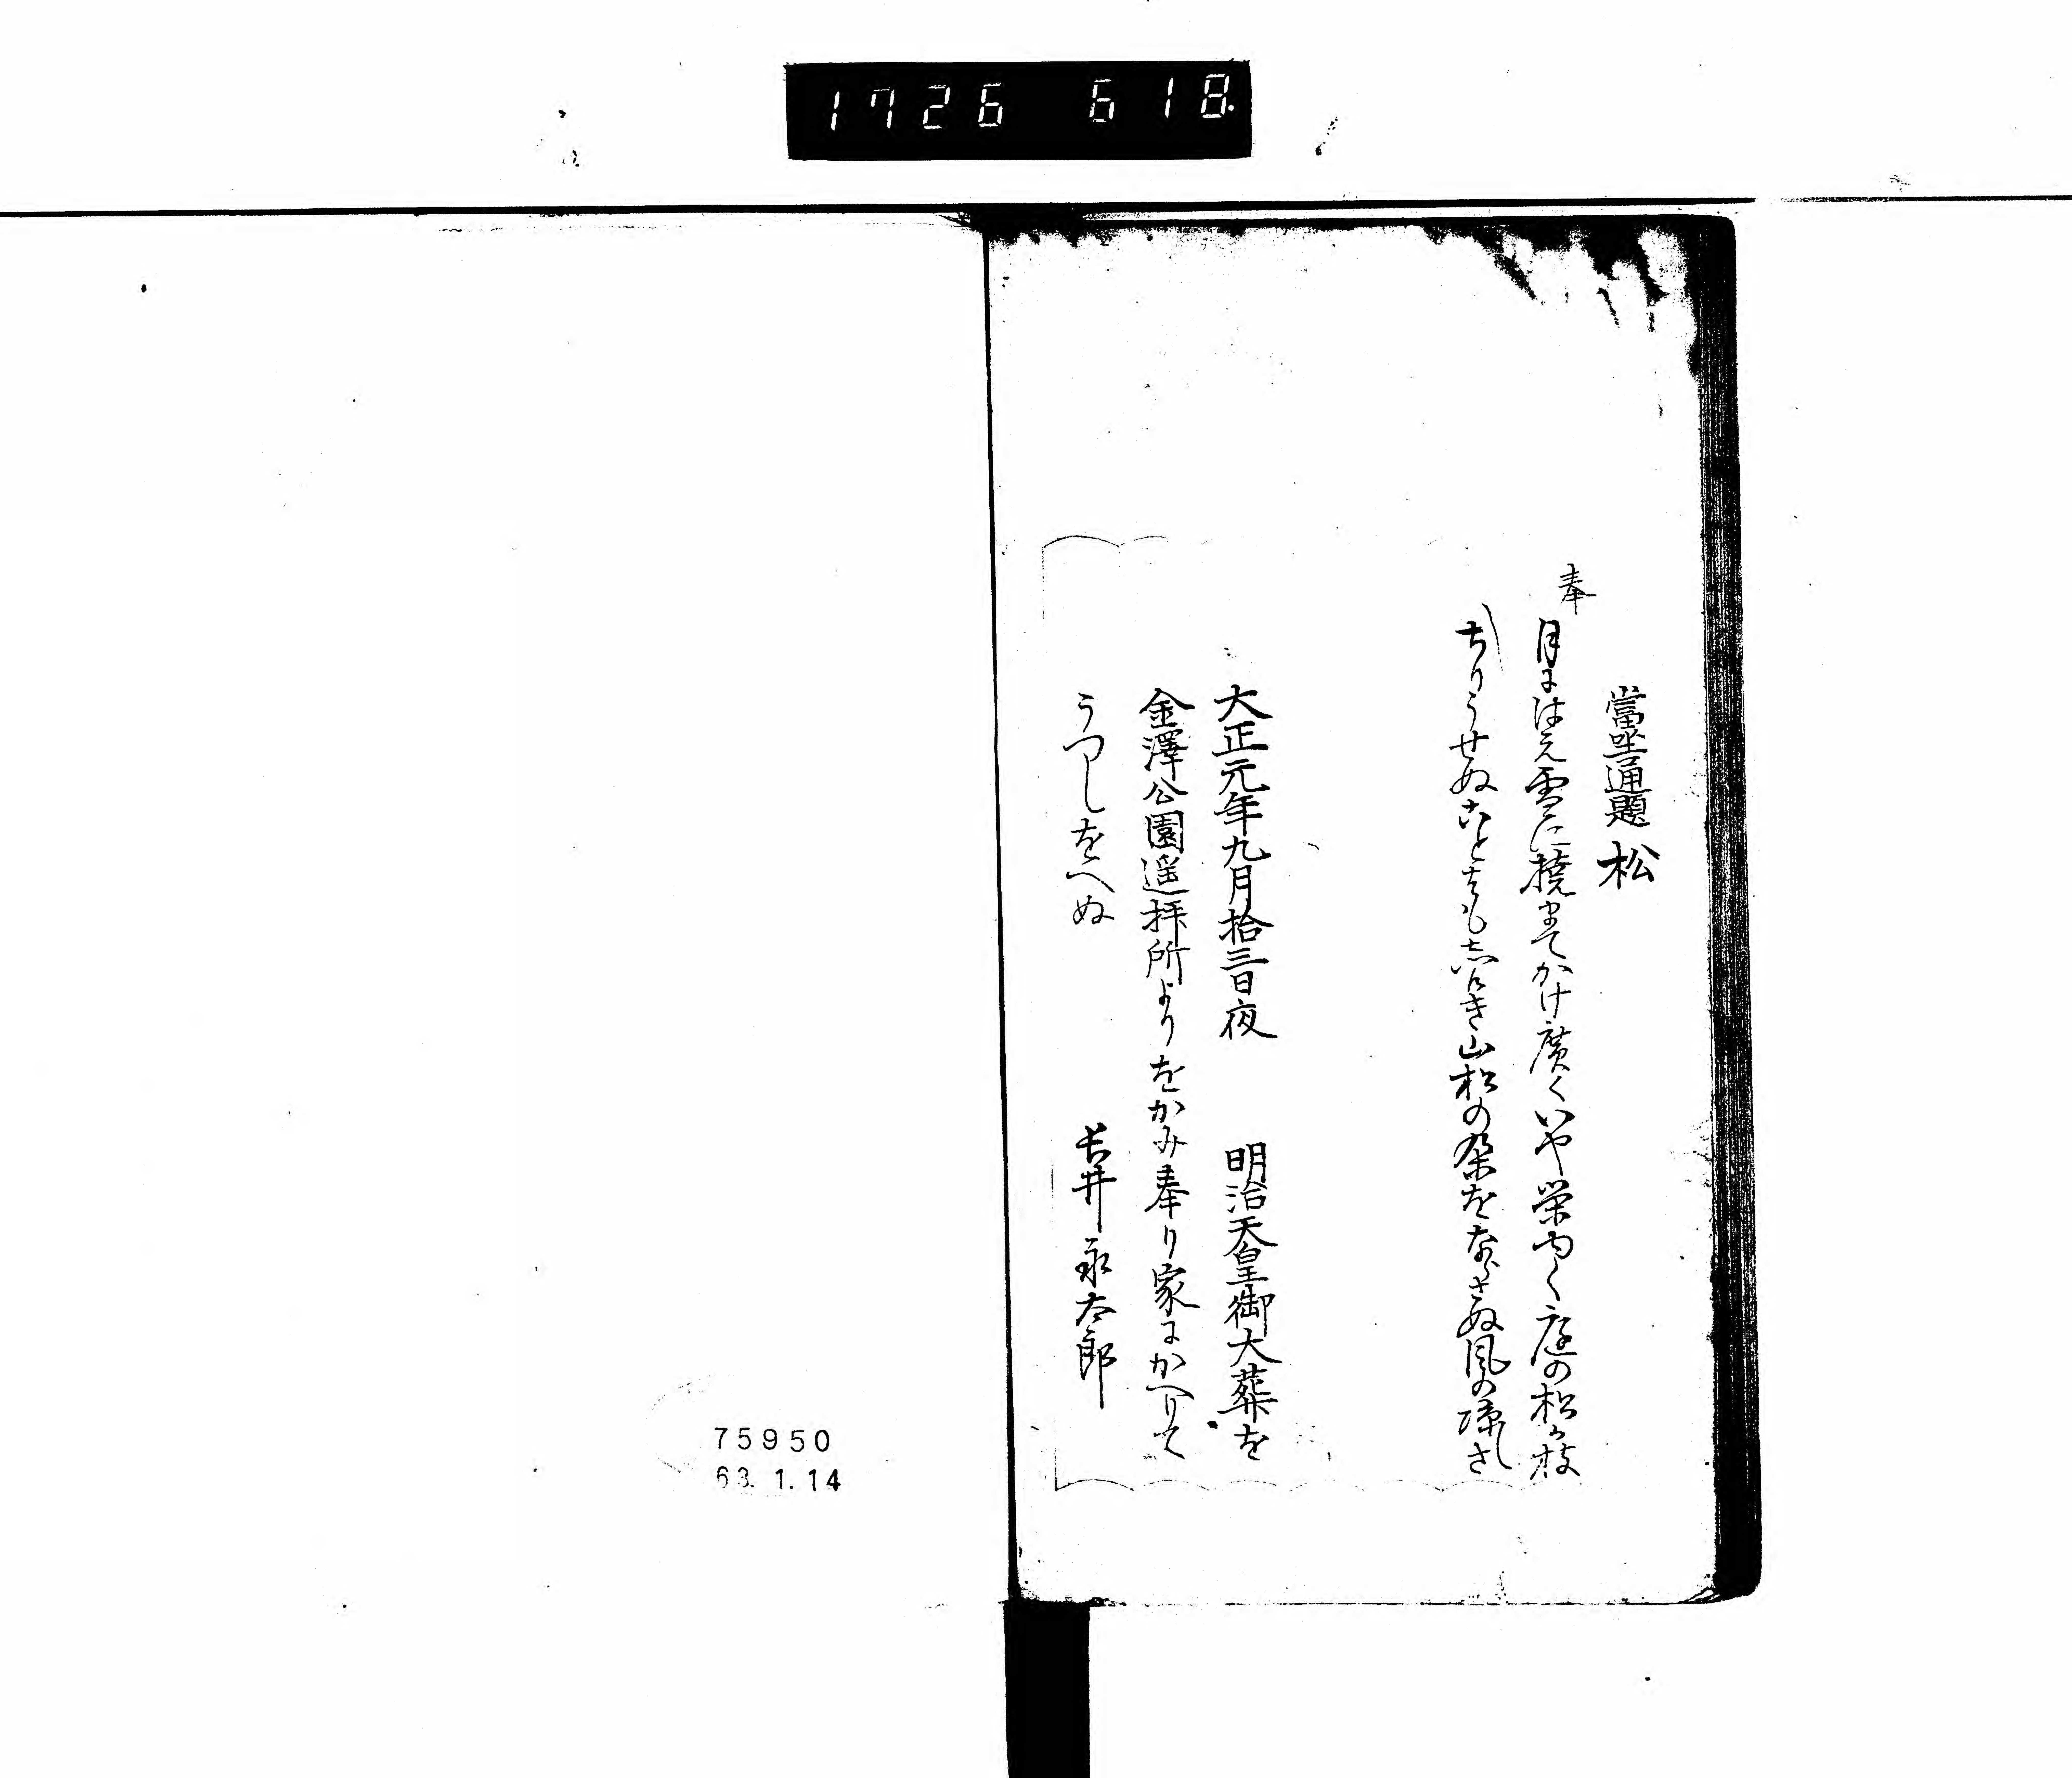 1726 618
當坐通題 松
奉
月には元雪に撓まてかけ廣くいや栄ゆく庭の松か枝
ちりうせぬことはも志けき山松の葉をならさぬ風の凉さ
大正元年九月拾三日夜 明治天皇御大葬を
金澤公園遥拝所よりをかみ奉り家にかへりて
うつしをへぬ 長井永太郎
75950
63. 1. 14